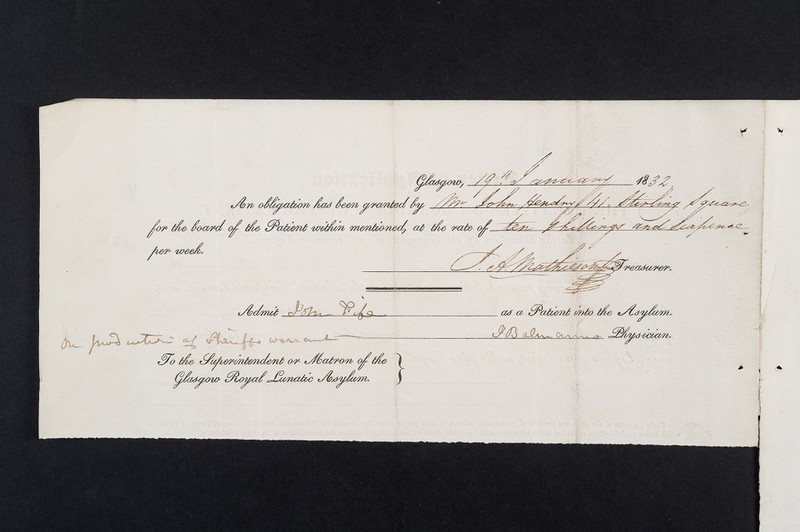 Glasgow, 19th January 1832
An obligation has been granted by Mr John Hendry 41 Stirling Square
for the board of the Patient within mentioned, at the rate of ten Shillings and Sixpence
per week.
J. A. Mathieson Treasurer.
Admit John Fife as a Patient into the Asylum.
on production of Sheriffs warrant J Balmanno Physician.
To the Superintendent or Matron of the
Glasgow Royal Lunatic Asylum.